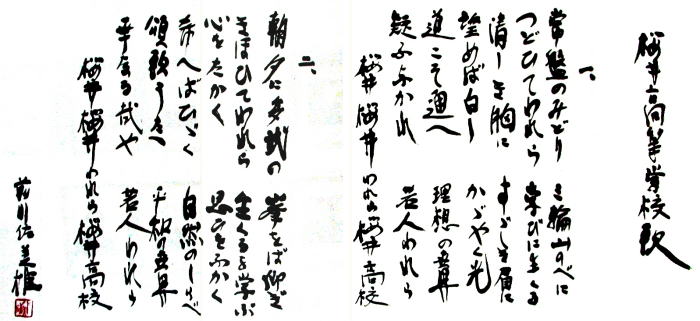 桜井高等学校歌
一、
常盤のみどり 三輪山のべに
つどひてわれら 学びに生くる
清しき胸に すゞしき眉に
望めば白し かゞやく光
道こそ通へ 理想の世界
疑ふなかれ 若人われら
桜井桜井われら桜井高校
二、
朝夕に多武の 峯をば仰ぎ
きほひてわれら 生くるを学ぶ
心をたかく 思ひをふかく
へばひゞく 自然のしらべ
頌歌うたへ 平和の世界
なる哉や 若人われら
桜井桜井われら桜井高校
前川佐美雄